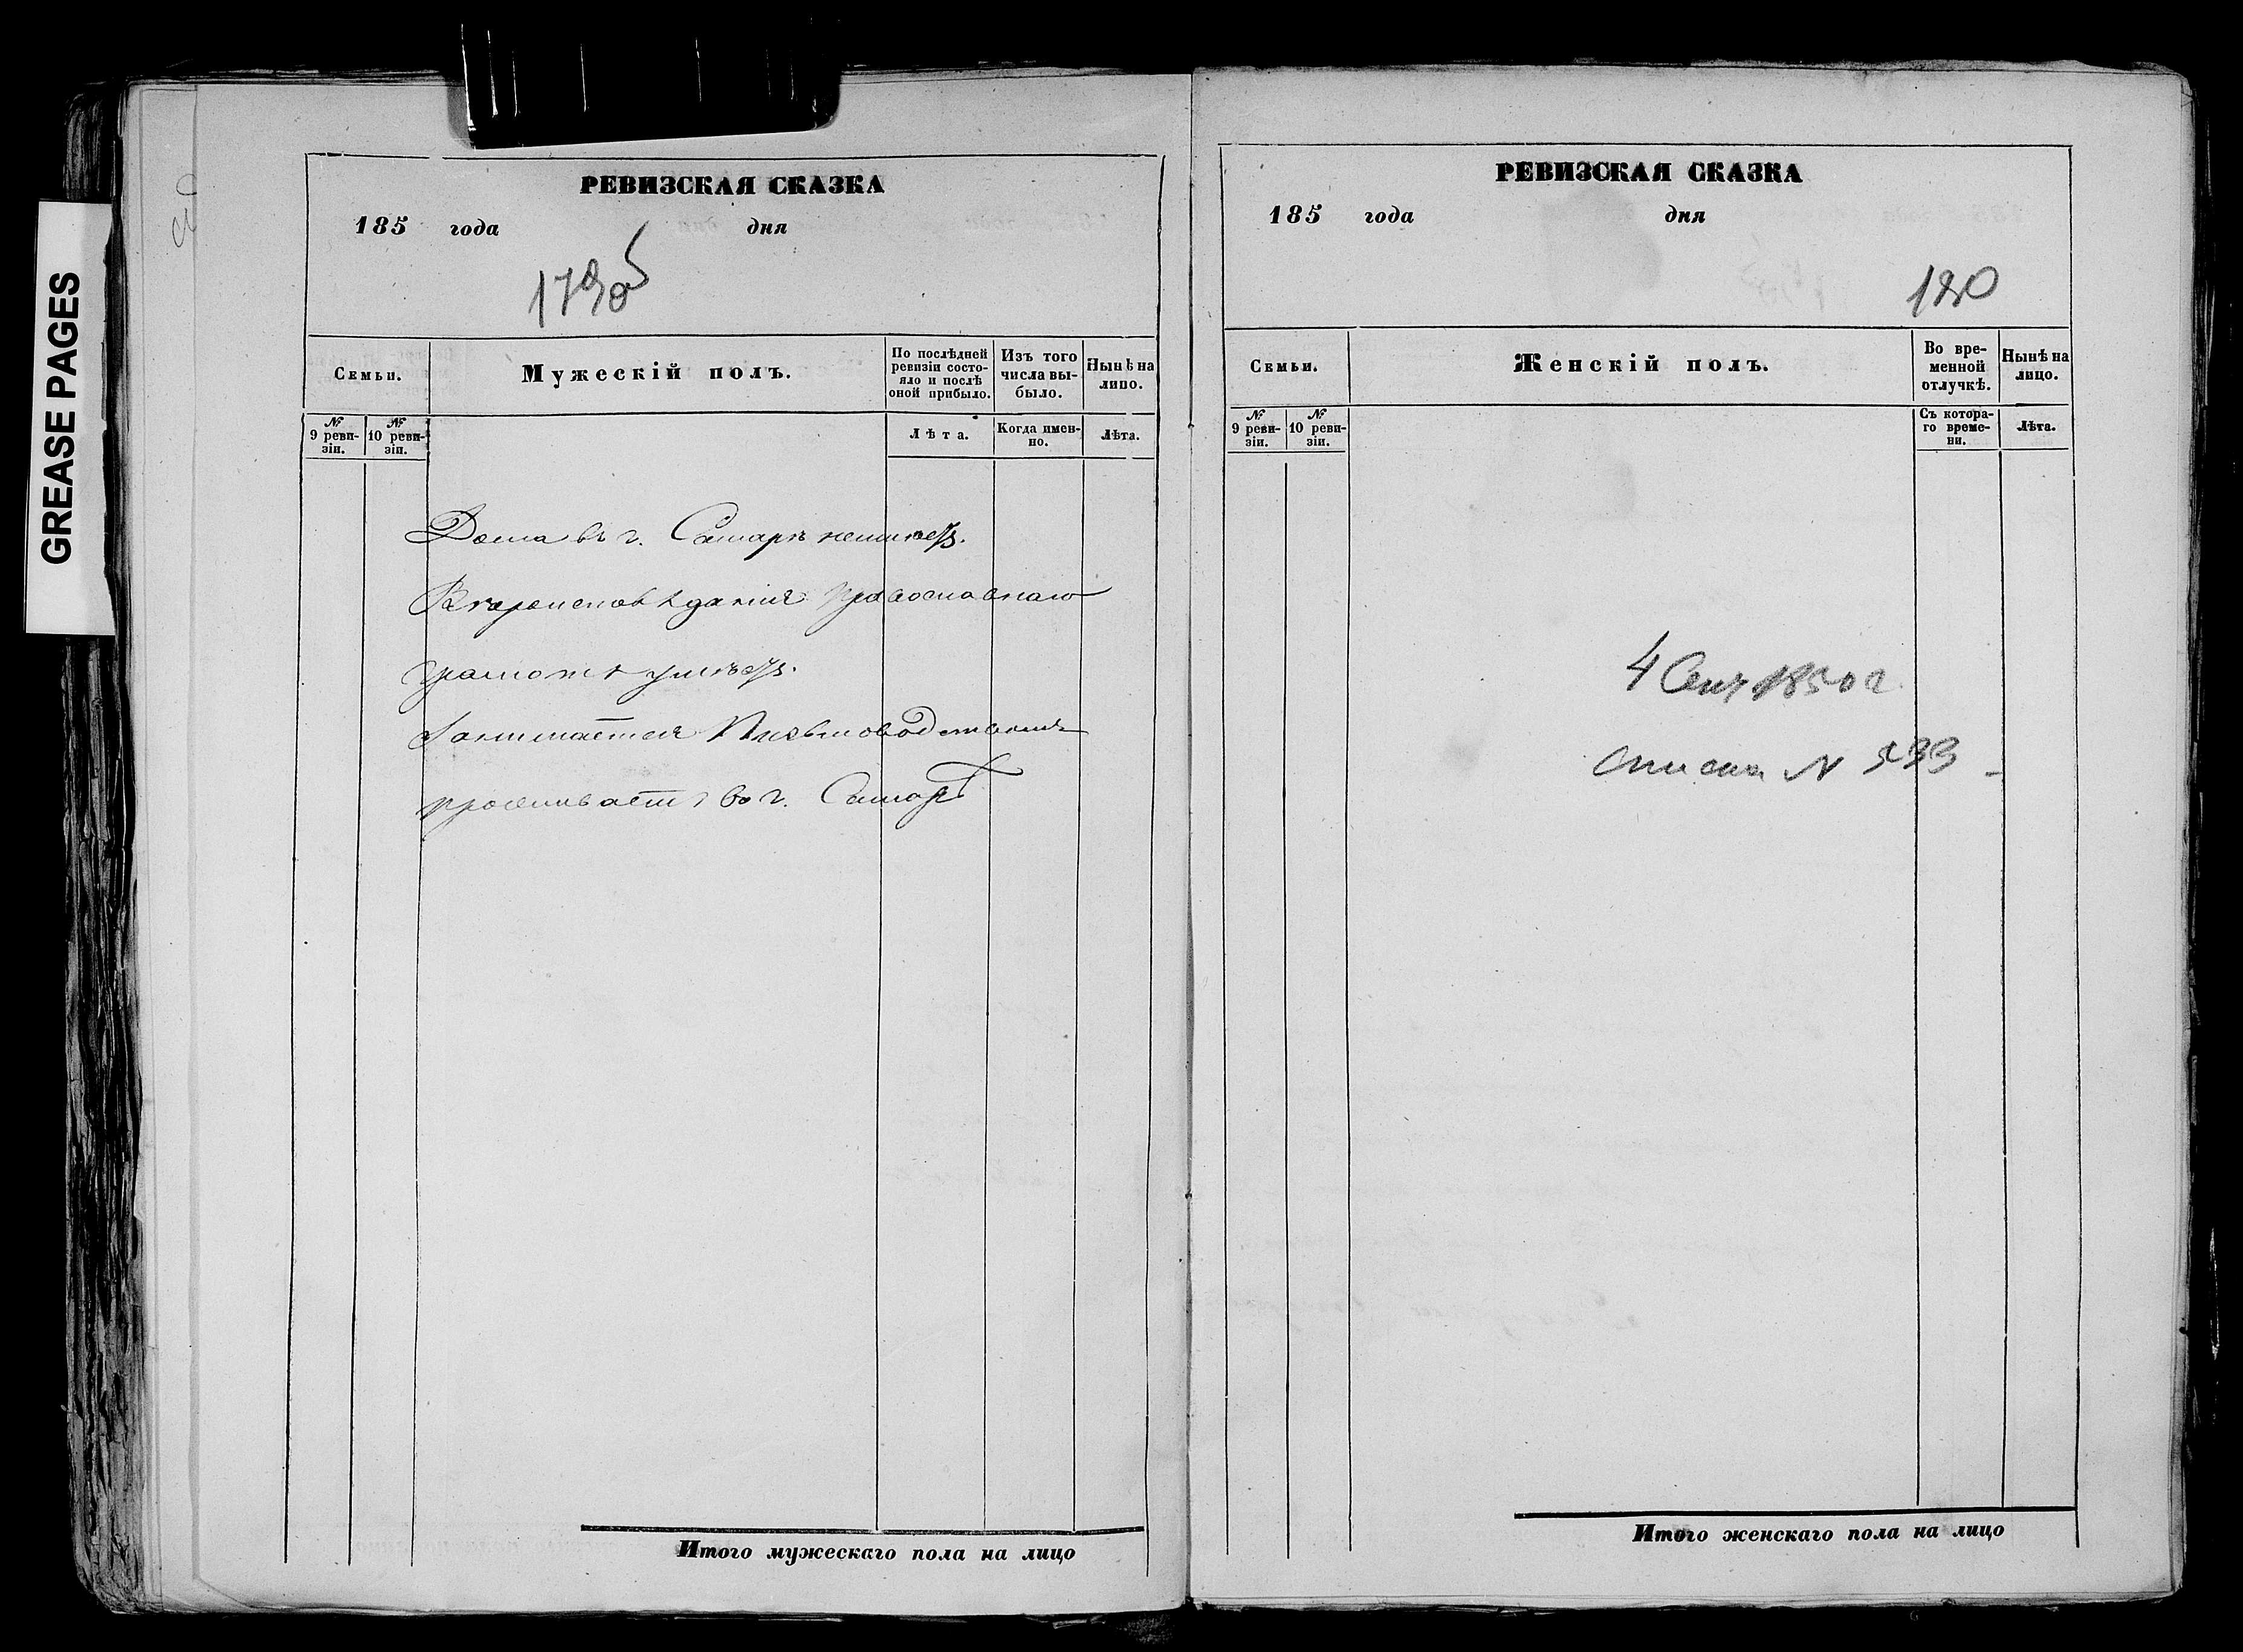 GREASE PAGES
РЕВИЗСКАЯ СКАЗКА
185 года дня
Семьи.
Мужескій полъ.
По послѣдней ревизіи состо-
яло и послѣ
оной прибыло.
Изъ того
числа вы-
было.
Нынѣ на
лицо.
№
9 реви-
зіи.
№
10 реви-
зіи.
Лѣта.
Когда имен-
но.
Лѣта.
Дома въ г. Самарѣ неимѣетъ.
Вѣроисповѣданія православнаго
грамотѣ умѣетъ.
Занимается Письмоводствомъ
проживаетъ въ г. Самарѣ
Итого мужескаго пола на лицо
РЕВИЗСКАЯ СКАЗКА
185 года дня
180
Семьи.
Женскій полъ.
Во вре-
менной
отлучкѣ.
Нынѣ на
лицо.
№
9 реви-
зіи.
№
10 реви-
зіи.
Съ котора-
го време-
ни.
Лѣта.
4 Сент 1850 г.
списка N 533
Итого женскаго пола на лицо